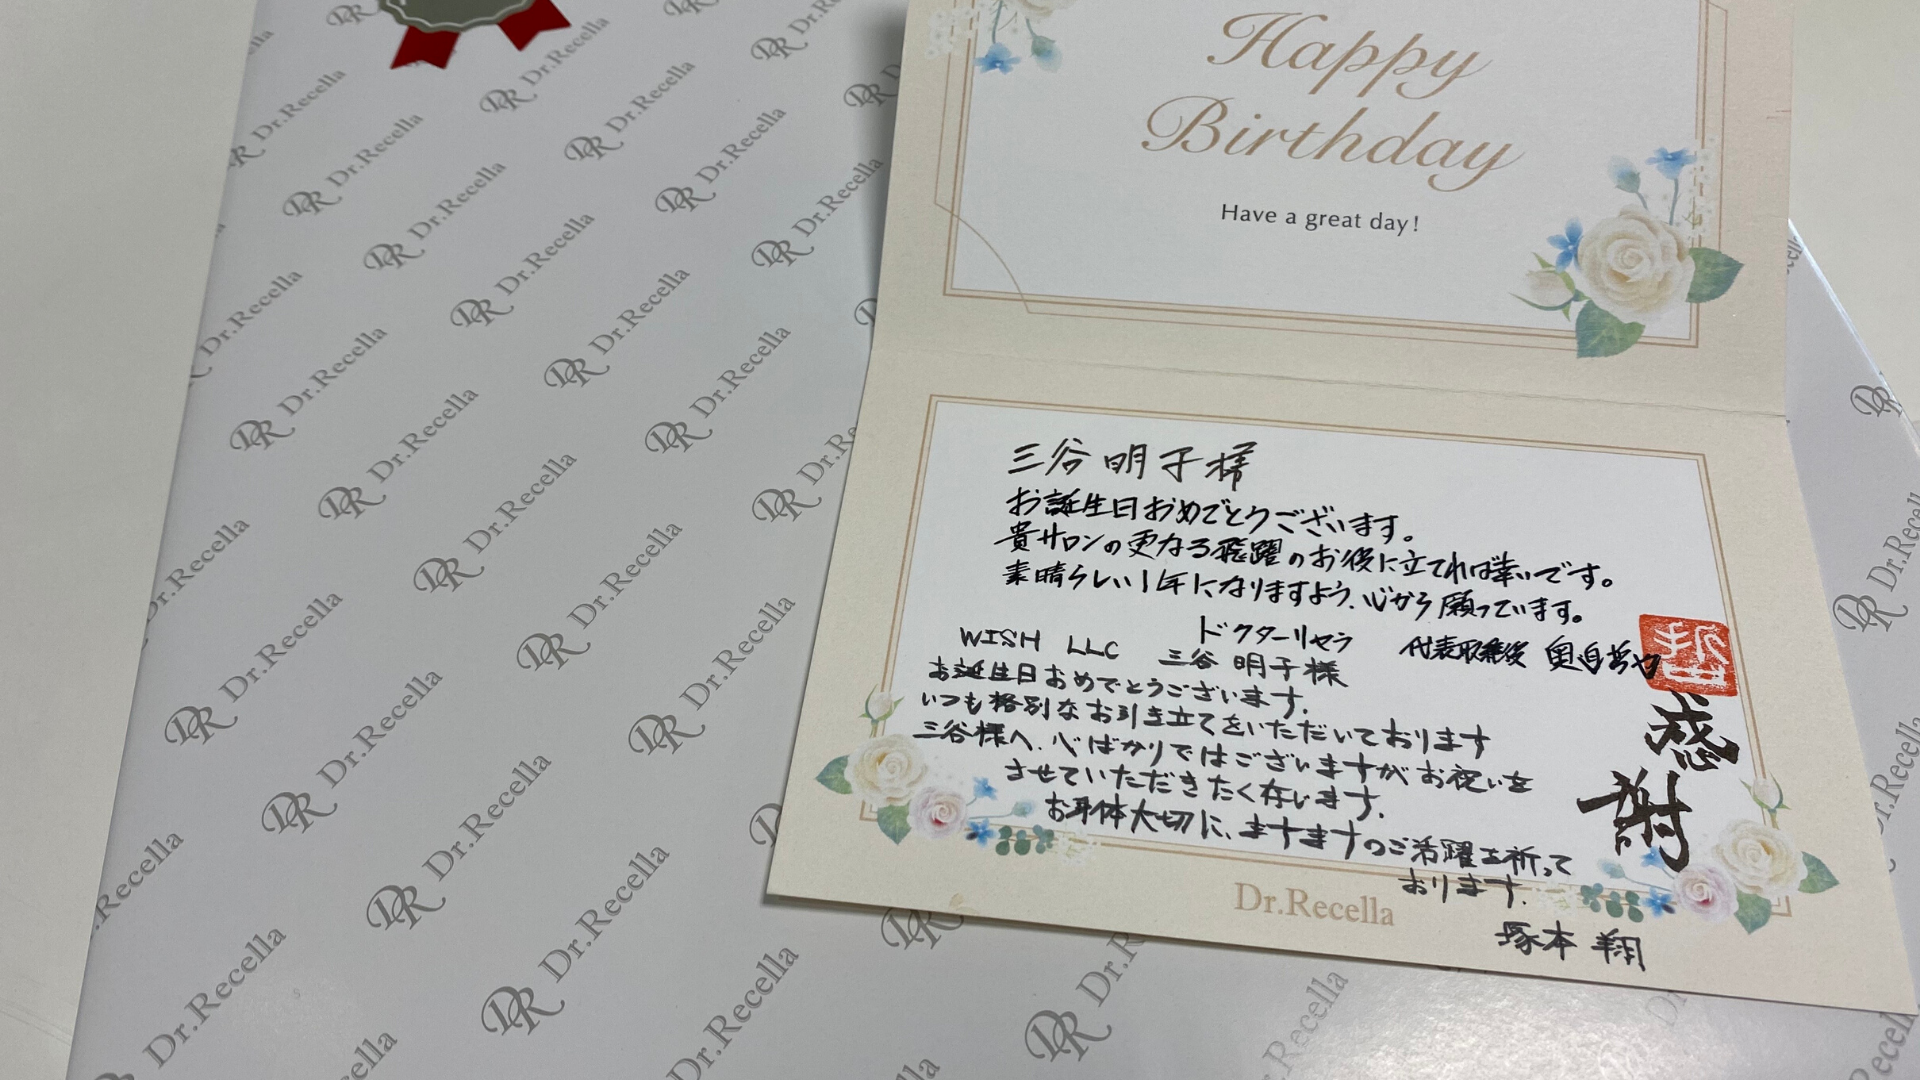 Happy
Birthday
Have a great day!
三谷明子様
お誕生日おめでとうございます。
貴サロンの更なる飛躍のお役に立てれば幸いです。
素晴らしい1年になりますよう、心から願っています。
ドクターリセラ 代表取締役 奥迫哲也
感謝
WISH LLC 三谷 明子様
お誕生日おめでとうございます.
いつも格別なお引き立てをいただいております
三谷様へ、心ばかりではございますがお祝いを
させていただきたく存じます.
お身体大切に、ますますのご活躍を祈って
おります.
塚本 翔
Dr.Recella
DR Dr.Recella